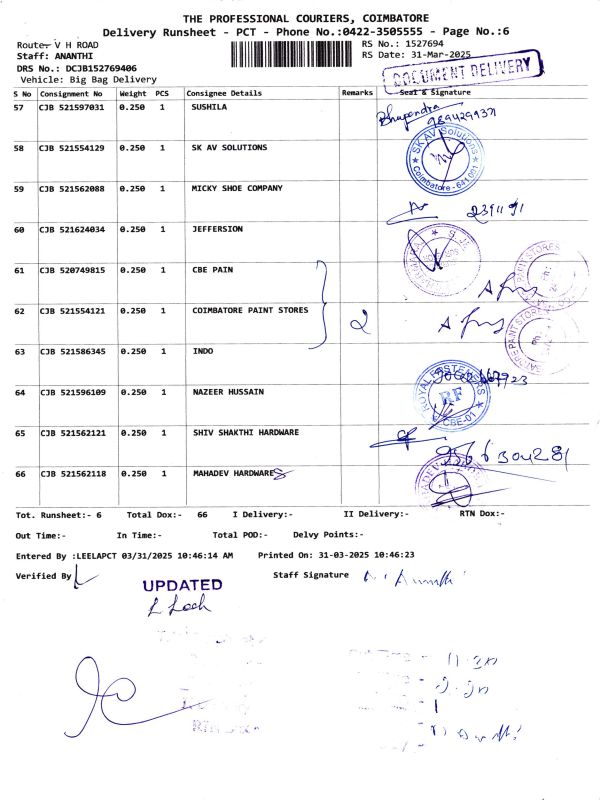 THE PROFESSIONAL COURIERS, COIMBATORE
Delivery Runsheet - PCT - Phone No.:0422-3505555 - Page No.:6
Route:- V H ROAD
RS No.: 1527694
Staff: ANANTHI
RS Date: 31-Mar-2025
DRS No.: DCJB152769406
Vehicle: Big Bag Delivery
DOCUMENT DELIVERY
S No Consignment No Weight PCS Consignee Details Remarks Seal & Signature
57 CJB 521597031 0.250 1 SUSHILA Bhupendra
9894299371
58 CJB 521554129 0.250 1 SK AV SOLUTIONS
SK AV Solutions Coimbatore - 641 001
59 CJB 521562088 0.250 1 MICKY SHOE COMPANY
60 CJB 521624034 0.250 1 JEFFERSION
61 CJB 520749815 0.250 1 CBE PAIN
62 CJB 521554121 0.250 1 COIMBATORE PAINT STORES 2
63 CJB 521586345 0.250 1 INDO
64 CJB 521596109 0.250 1 NAZEER HUSSAIN
ROYAL RF CBE-01
65 CJB 521562121 0.250 1 SHIV SHAKTHI HARDWARE
9566304281
66 CJB 521562118 0.250 1 MAHADEV HARDWARES
Tot. Runsheet:- 6 Total Dox:- 66 I Delivery:- II Delivery:- RTN Dox:-
Out Time:- In Time:- Total POD:- Delvy Points:-
Entered By :LEELAPCT 03/31/2025 10:46:14 AM Printed On: 31-03-2025 10:46:23
Verified By Staff Signature
UPDATED